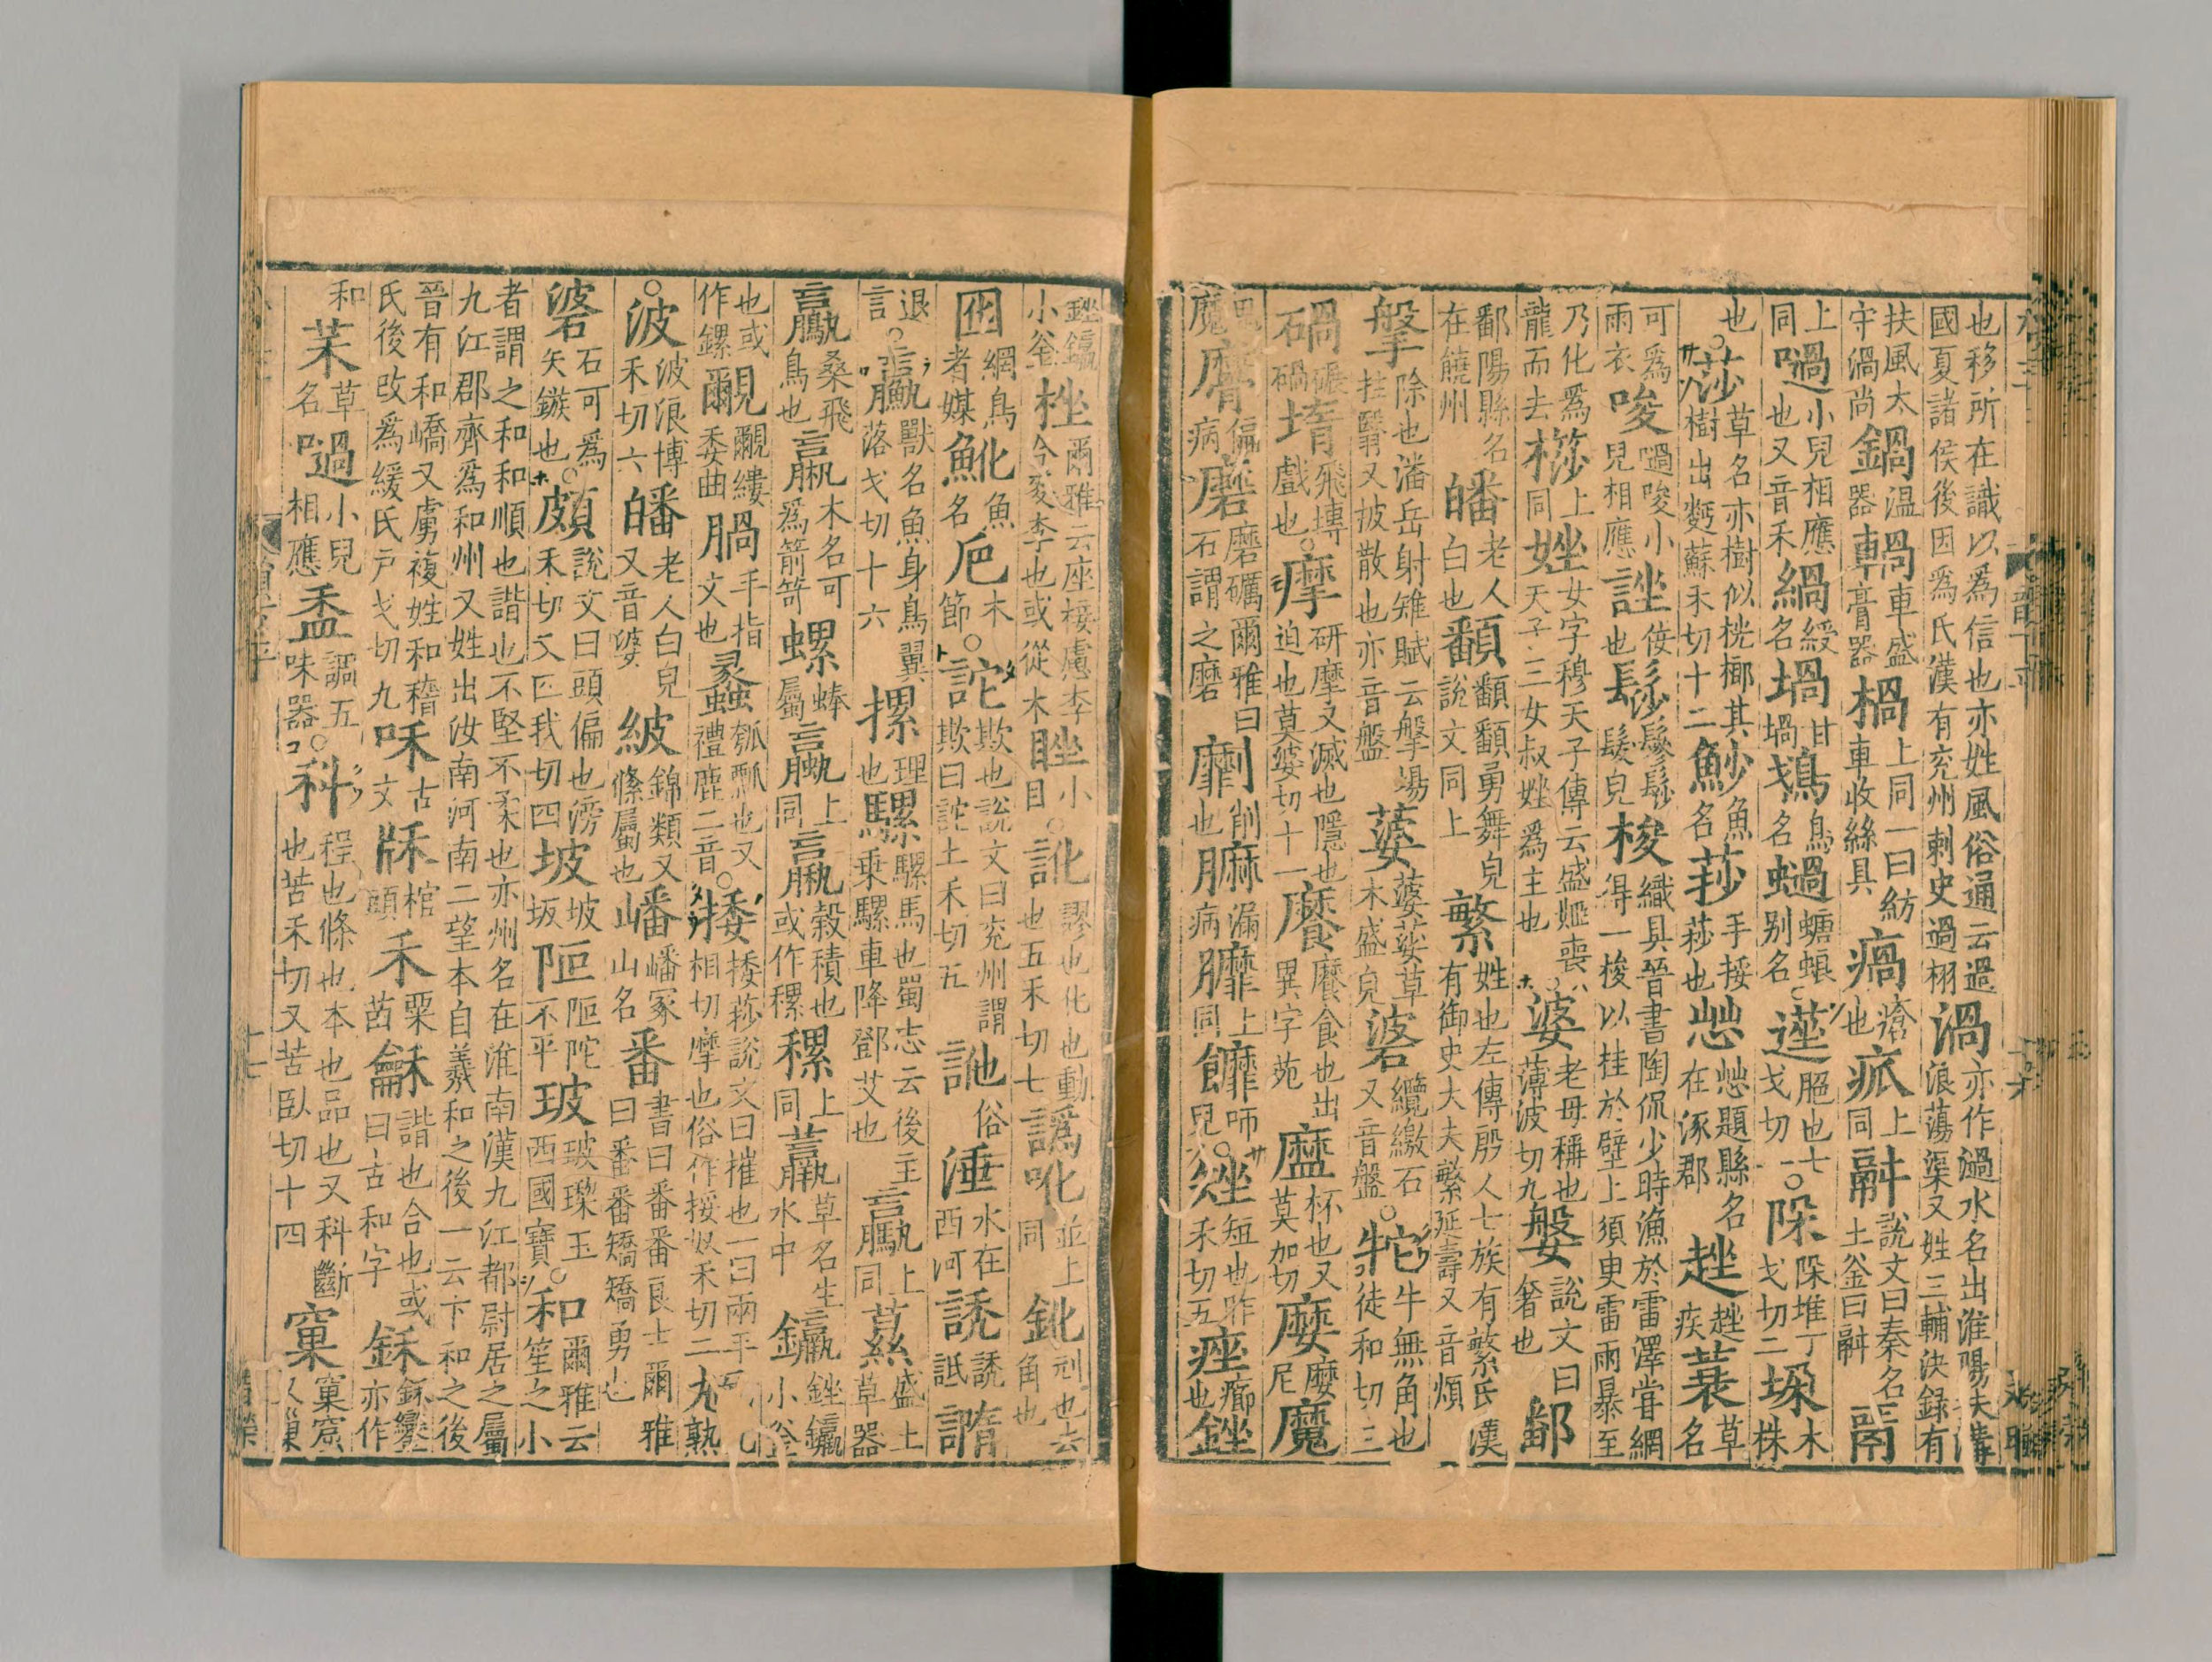 也移所在識以爲信也亦姓風俗通云過國夏諸侯後因爲氏漢有兖州刺史過栩渦亦作濄水名出淮陽扶溝浪蕩渠又姓三輔決録有
扶風太守渦尚鍋温器𨍋車盛膏器楇上同一曰紡車收絲具瘑瘡也㽿上同䰛説文曰秦名土釜曰䰛鬲
上同𠺗小兒相應也又音禾緺綬名堝甘堝䳡鳥名螗蜋别名○脞也七戈切一○垛堆丁戈切二垜木株
也○莎草名亦樹似桄榔其樹出麪蘇禾切十二魦魚名挱手挼挱也題縣名在涿郡趖趖疾蓑草名
可爲雨衣唆𠺗唆小兒相應䛗侫也髿鬖髿髮皃梭織具晉書陶侃少時漁於雷澤甞網得一梭以挂於壁上須臾雷雨暴至
乃化爲龍而去桫上同㛗女字穆天子傳云盛姬喪天子三女叔㛗爲主也○婆老母稱也薄波切九媻説文曰奢也鄱
鄱陽縣名在饒州皤老人白也䪤䪤䪤勇舞皃説文同上繁姓也左傳殷人七族有繁氏漢有御史大夫繁延壽又音煩
搫除也潘岳射雉賦云搫場拄翳又披散也亦音盤蔢蔢荽草木盛皃碆纜繳石又音盤○牠牛無角也徒和切三
碢碾碢𡐦飛塼戲也○摩研摩又滅也隱也迫也莫婆切十一食也出異字苑杯也又莫加切尼魔
鬼魔偏病磨磨礪爾雅曰石謂之磨劘削也漏病上同師皃○矬短也昨禾切五痤癤也銼
銼鑹小釜桽爾雅云座椄慮李今麥李也或從木䂳小目○訛謬也化也動也五禾切七譌吪並上同鈋刓也去角也
囮網鳥者媒魤魚名厄木節○詑欺也説文曰兖州謂欺曰詑土禾切五訑俗涶水在西河䛢䛢詆𧩙
退言○臝獸名魚身鳥翼落戈切十六摞理也騾騾馬也蜀志云後主乗騾車降鄧艾也驘上同蔂盛土草器
鸁桑飛鳥也木名可爲箭笴螺蚌屬蠃上同穀積也或作稞稞上同草名生水中鑹銼鑹小釜
也或作鏍覶覶縷委曲腡手指文也蠡瓠瓢也又禮鹿二音○捼捼莏説文曰摧也一曰兩手相切摩也俗作挼奴禾切二熟
○波波浪博禾切六皤老人白皃又音婆紴錦類又絛屬也嶓嶓冢山名番書曰番番良士爾雅曰番番矯矯勇也
碆石可爲矢鏃也○頗説文曰頭偏也滂禾切又匹我切四坡坡坂陂陂陀不平玻玻瓈玉西國寶○和爾雅云笙之小
者謂之和和順也諧也不堅不柔也亦州名在淮南漢九江都尉居之屬九江郡齊爲和州又姓出汝南河南二望本自羲和之後一云卞和之後
晉有和嶠又虜複姓和稽氏後改爲緩氏户戈切九咊古文䄒棺頭禾粟苗龢諧也合也或曰古和字鉌鉌鑾亦作
和䒩草名𠺗小兒相應盉調五味器○科程也條也本也品也又科斷也苦禾切又苦臥切十四窠窠窟又巢